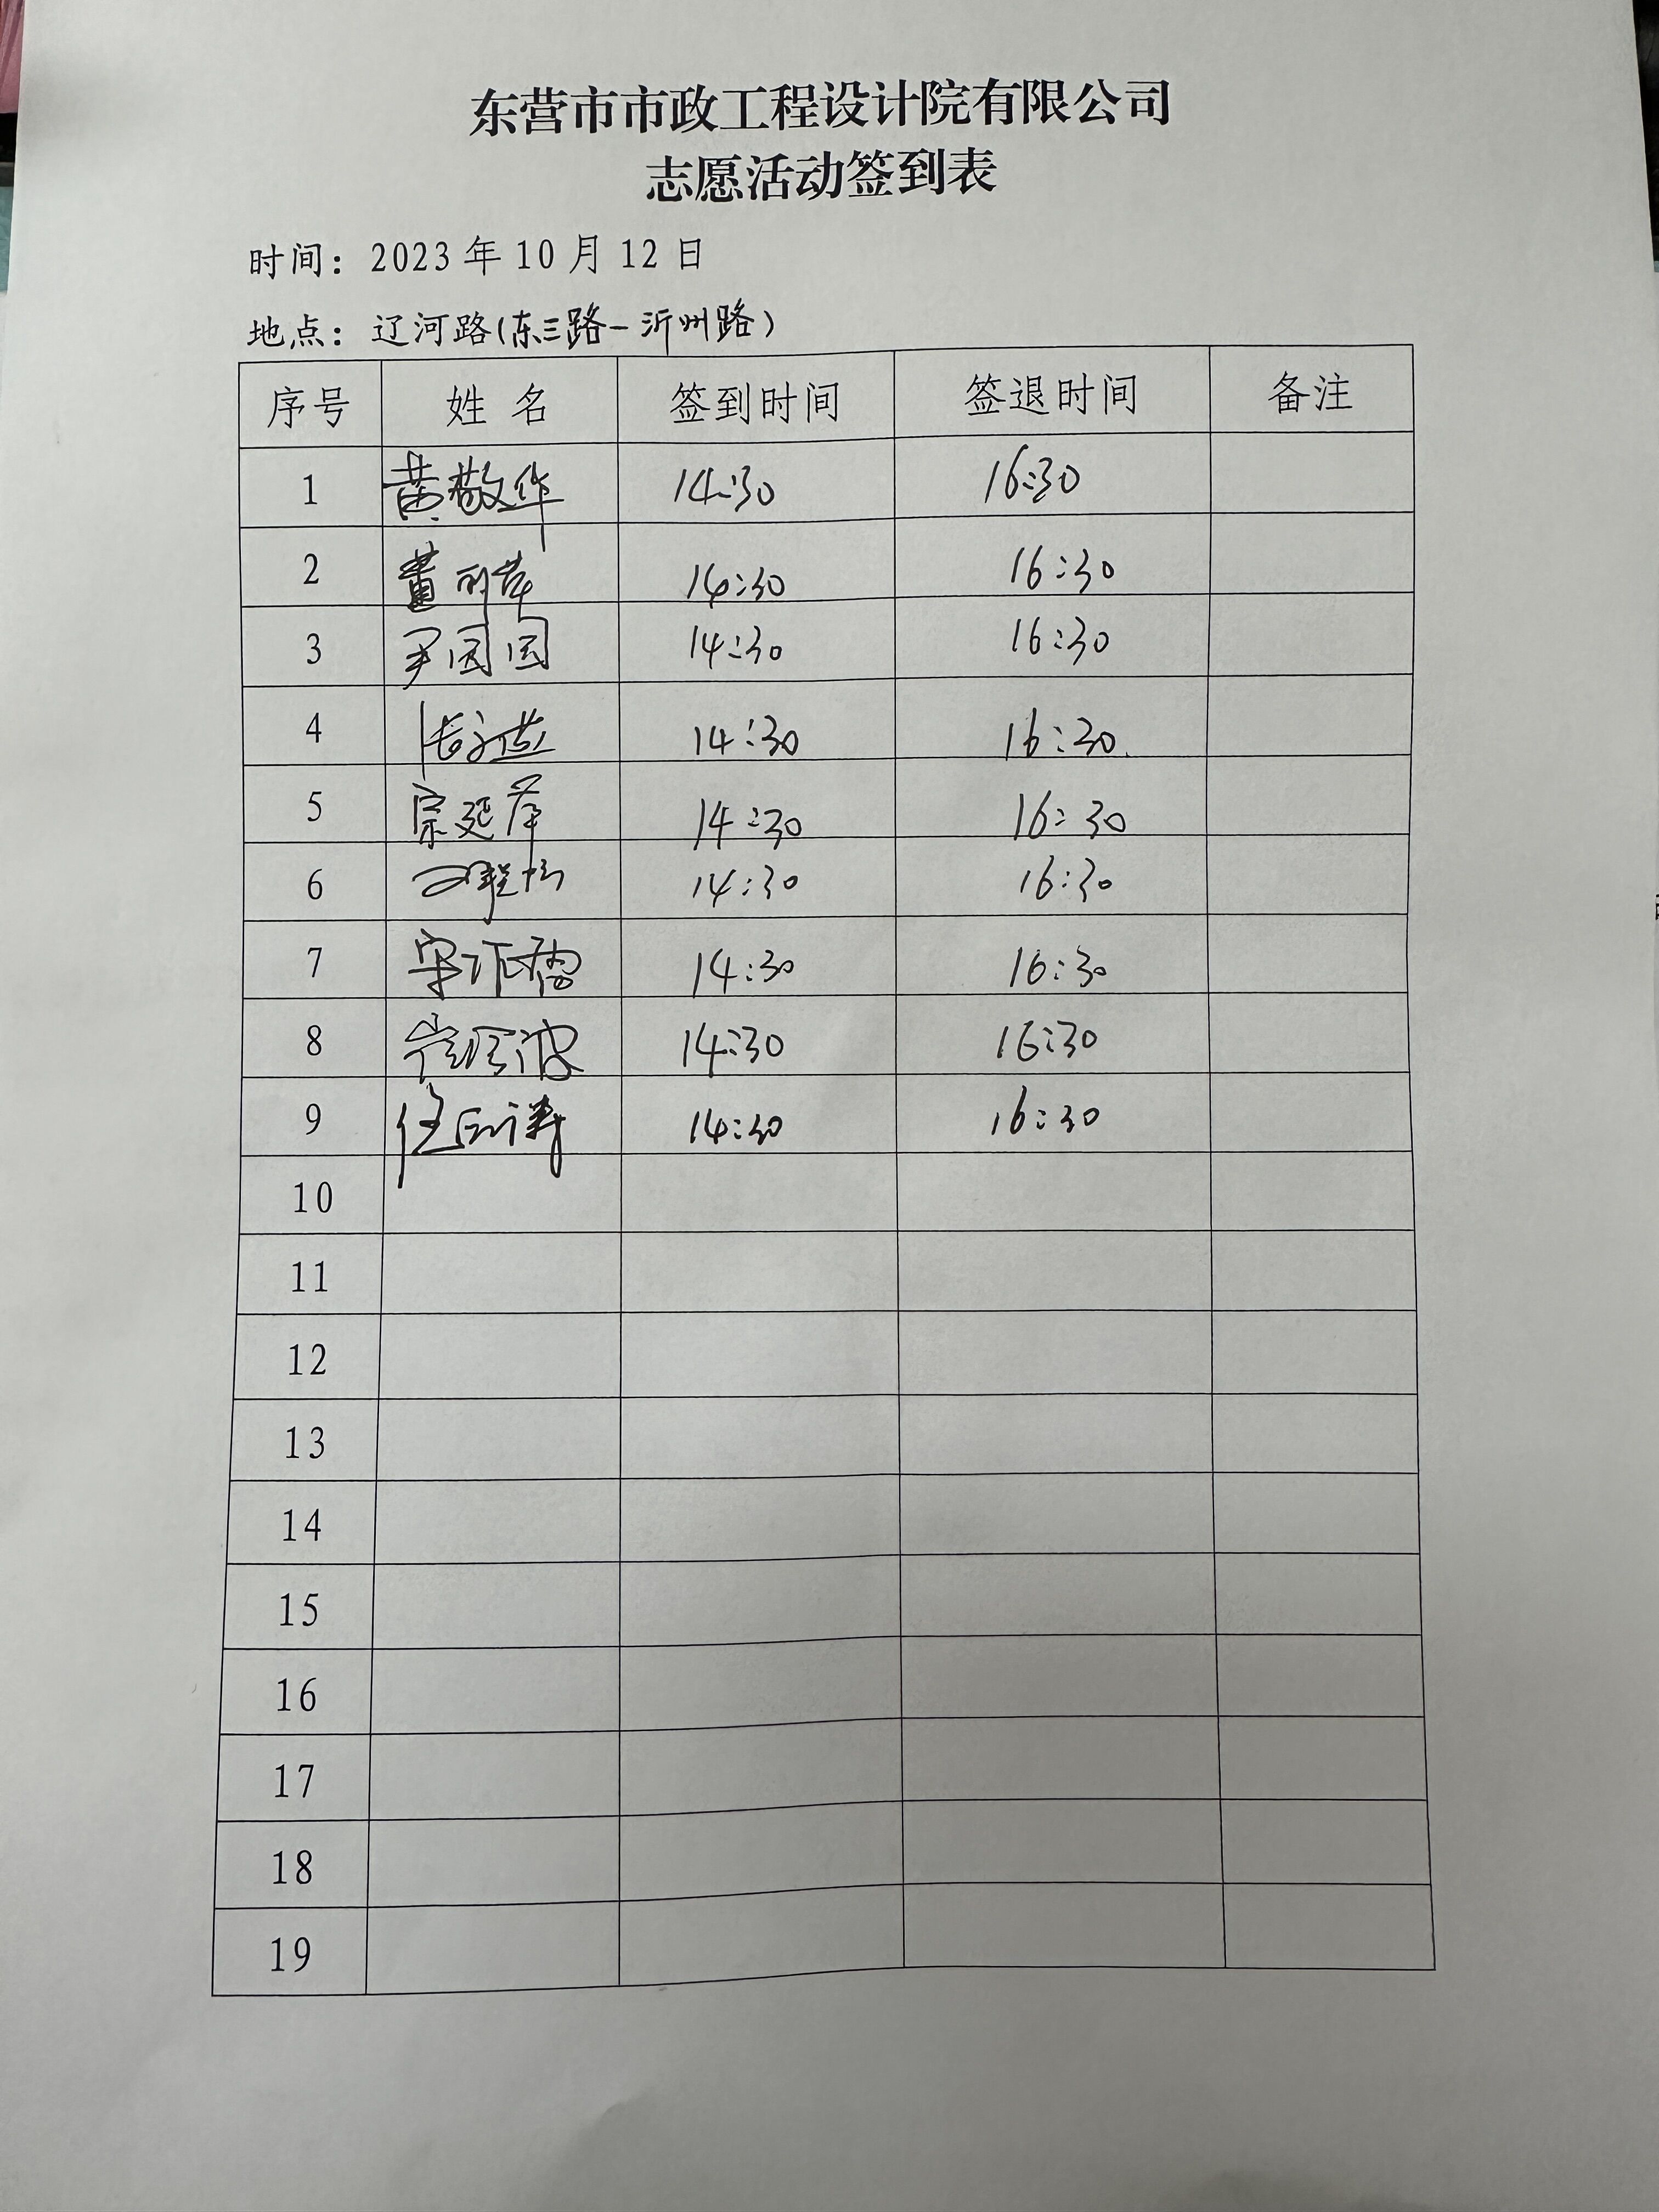 东营市市政工程设计院有限公司
志愿活动签到表
时间：2023年10月12日
地点：辽河路(东三路-沂州路)
序号 姓名 签到时间 签退时间 备注
1 黄敬华 14:30 16:30
2 14:30 16:30
3 尹园园 14:30 16:30
4 14:30 16:30
5 宗延萍 14:30 16:30
6 14:30 16:30
7 14:30 16:30
8 14:30 16:30
9 14:30 16:30
10
11
12
13
14
15
16
17
18
19